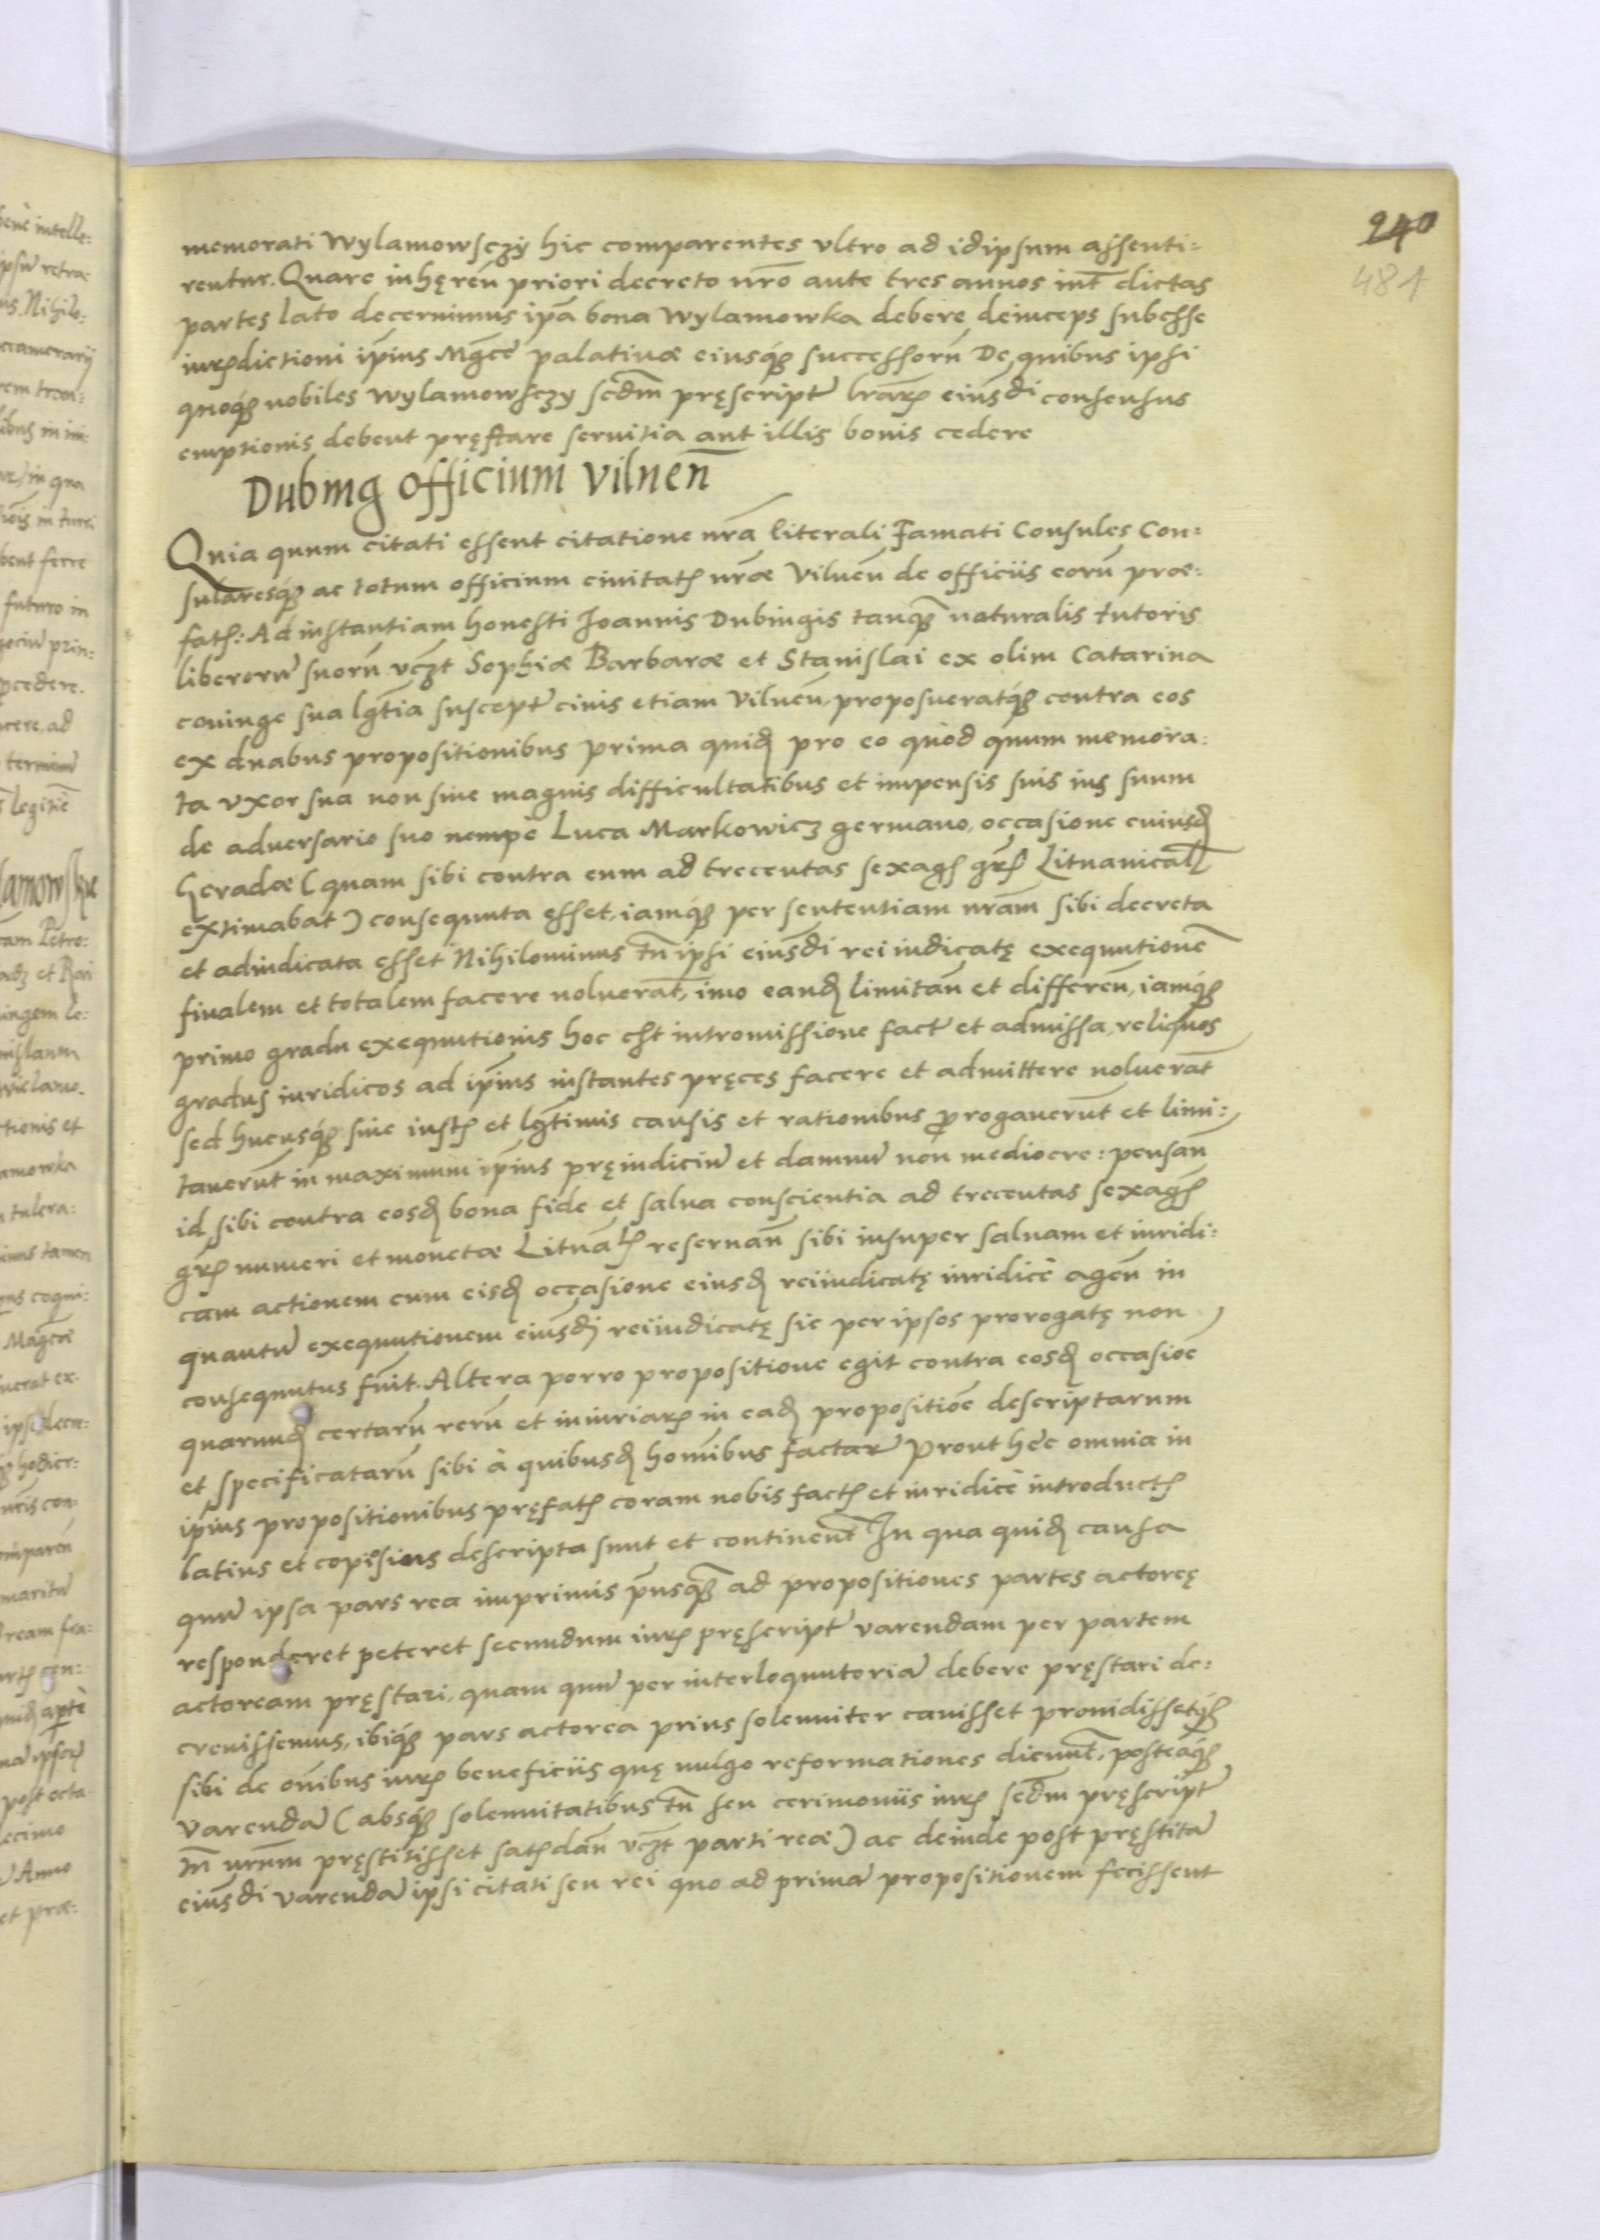 240
481
memorati Wylamowsczy hic comparentes vltro ad idipsum assenti:
rentur. Quare inhęreñ priori decreto nr̃o ante tres annos int̃ dictas
partes lato decernimus ip̃a bona Wylamowka debere deinceps subesse
iurisdictioni ip̃ius Mgcẽ palatinæ eiusq́ȝ successorũ De quibus ipsi
quoq́ȝ nobiles Wylamowsczy scd̃m pręscript lr̃aȝ eiusd̃i consensus
emptionis debent pręstare seruitia aut illis bonis cedere
Dubing officium Vilneñ
Quia quum citati essent citatione nr̃a literali Famati Consules Con:
sularesq́ȝ ac totum officium ciuitatȝ nr̃æ Vilneñ de officiis eorũ præ:
fatȝ: Ad instantiam honesti Joannis Dubingis tanqȝ naturalis tutoris
liberorũ suorũ vczt Sophiæ Barbaræ et Stanislai ex olim Catarina
coniuge sua lg̃tĩa suscept ciuis etiam Vilneñ, proposueratq́ȝ contra eos
ex duabus propositionibus prima quiđ pro eo quòd quum memora:
ta vxor sua non sine magnis difficultatibus et impensis suis ius suum
de aduersario suo nempe Luca Markowicz germano, occasione cuiusđ
Geradæ (quam sibi contra eum ad trecentas sexagȝ grȝ Lituanicalȝ
extimabat) consequuta esset, iamq́ȝ per sententiam nr̃am sibi decreta
et adiudicata esset Nihilominus tñ ipsi eiusd̃i rei iudicatę exequutionẽ
finalem et totalem facere noluerãt, imo eanđ limitañ et differeñ, iamq́ȝ
primo gradu exequutionis hoc est intromissione fact et admissa reliquos
gradus iuridicos ad ip̃ius instantes pręces facere et admittere noluerãt
sed hucusq́ȝ sine iustȝ et lg̃timis causis et rationibus ꝓrogauerũt et limi:
tauerũt in maximum ip̃ius pręiudiciũ et damnũ non mediocre: pensañ
id sibi contra eosđ bona fide et salua conscientia ad trecentas sexagȝ
grȝ numeri et monetæ Lituãlȝ reseruañ sibi insuper saluam et iuridi:
cam actionem cum eisđ occasione eiusđ reiiudicatę iuridicè ageñ in
quantũ exequutionem eiusd̃i reiiudicatę sic per ipsos prorogatę non
consequutus fuit. Altera porro propositione egit contra eosđ occasiõe
quarunđ certarũ rerũ et iniuriaȝ in eađ propositiõe descriptarum
et specificatarũ sibi à quibusđ homĩbus factaȝ Prout hęc omnia in
ip̃ius propositionibus pręfatȝ coram nobis factȝ et iuridicè introductȝ
latius et copiosius descripta sunt et continent̃ In qua quiđ causa
quũ ipsa pars rea imprimis p̃usqȝ ad propositiones partes actoreę
responderet peteret secundum iurȝ pręscript varendam per partem
actoream pręstari, quam quũ per interloquutoriã debere pręstari de:
creuissemus, ibiq́ȝ pars actorea prius solenniter cauisset prouidissetq́ȝ
sibi de oñibus iurȝ beneficiis quę vulgo reformationes dicunt̃, posteáq́ȝ
varendã (absq́ȝ solennitatibus tñ seu cerimoniis iurȝ scd̃m pręscript
m̃ nr̃um pręstitisset satȝdañ vczt parti reæ) ac deinde post pręstitã
eiusd̃i varendã ipsi citati seu rei quo ad primã propositionem fecissent